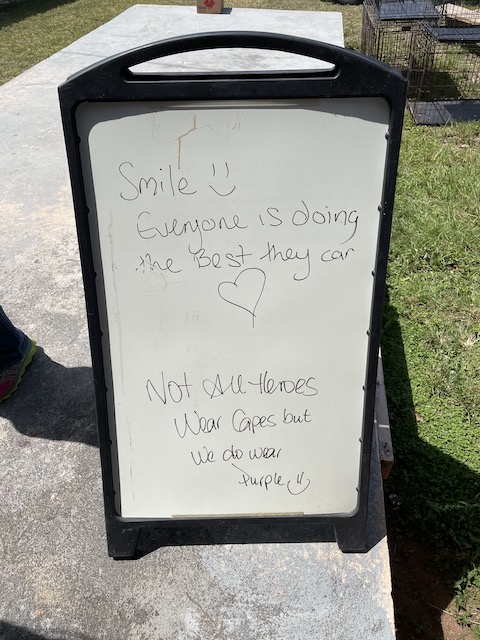 Smile
Everyone is doing
the Best they can
Not All Heroes
Wear Capes but
We do wear
purple